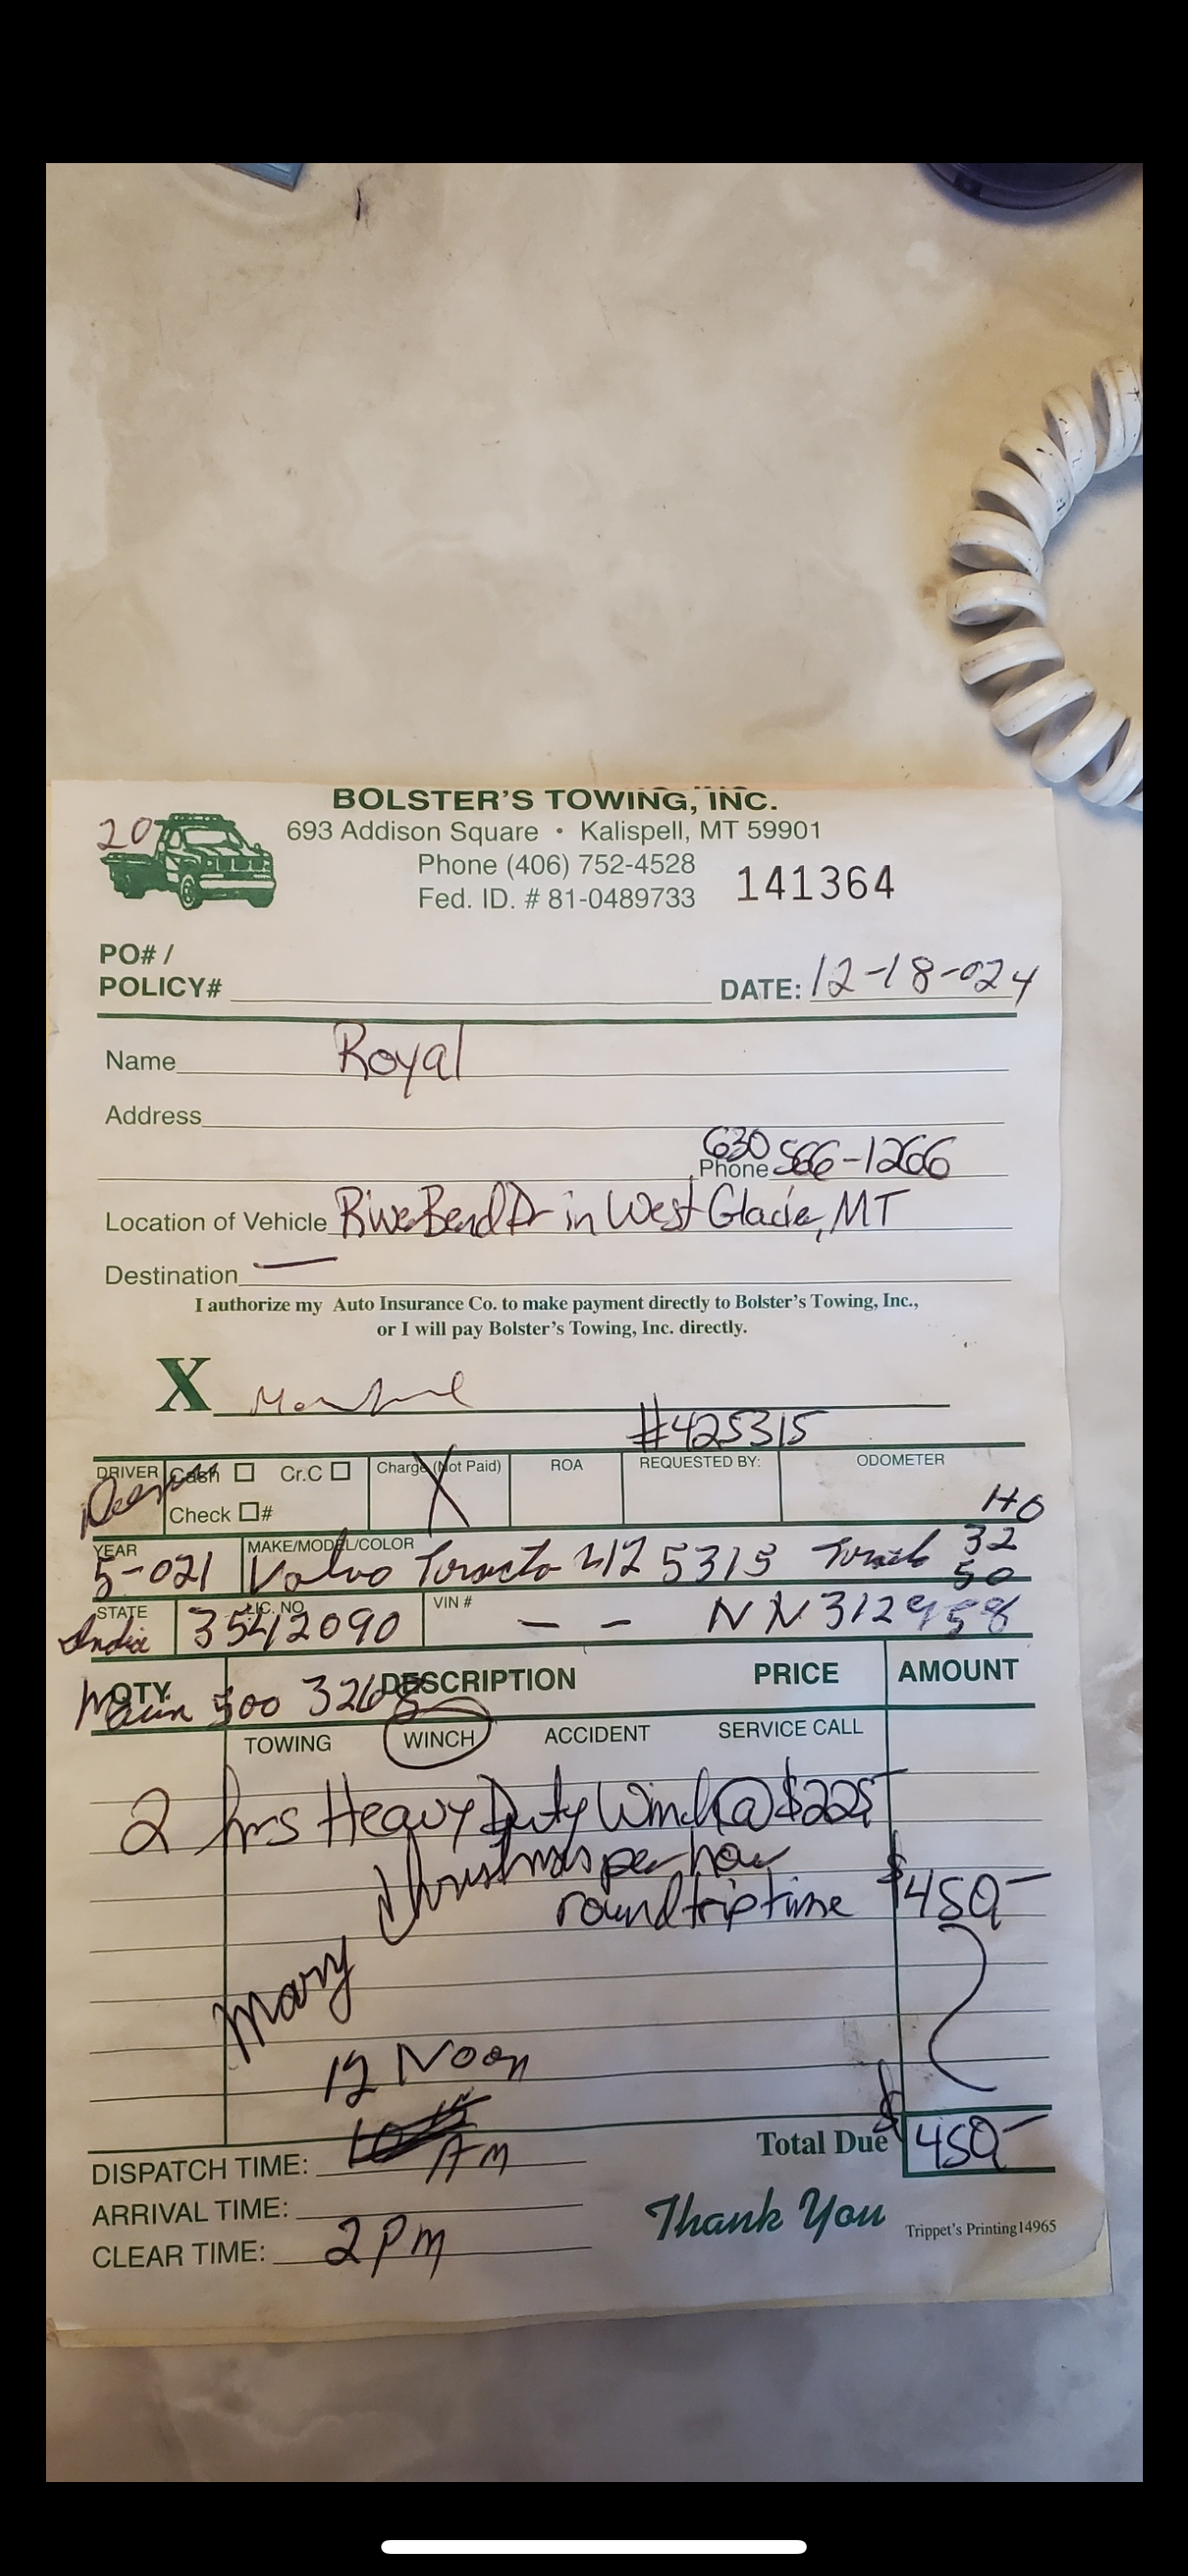 BOLSTER'S TOWING, INC.
20
693 Addison Square • Kalispell, MT 59901
Phone (406) 752-4528
Fed. ID. # 81-0489733
141364
PO# /
POLICY#
DATE: 12-18-024
Name Royal
Address
Phone 630 566-1266
Location of Vehicle in West Glacie, MT
Destination —
I authorize my Auto Insurance Co. to make payment directly to Bolster's Towing, Inc.,
or I will pay Bolster's Towing, Inc. directly.
X
#425315
DRIVER Cash Cr.C Charge (Not Paid) X ROA REQUESTED BY: ODOMETER
Check #
YEAR 5-021 MAKE/MODEL/COLOR Volvo 5315 32
50
STATE India LIC. NO. 35412090 VIN # — — NN312958
QTY. DESCRIPTION PRICE AMOUNT
500 3268
TOWING WINCH ACCIDENT SERVICE CALL
2 hrs Heavy Duty Winch @ $225
Christmas per hour
round trip time $450
Mary
12 Noon
DISPATCH TIME: AM
Total Due $450
ARRIVAL TIME:
Thank You
CLEAR TIME: 2 PM
Trippet's Printing14965